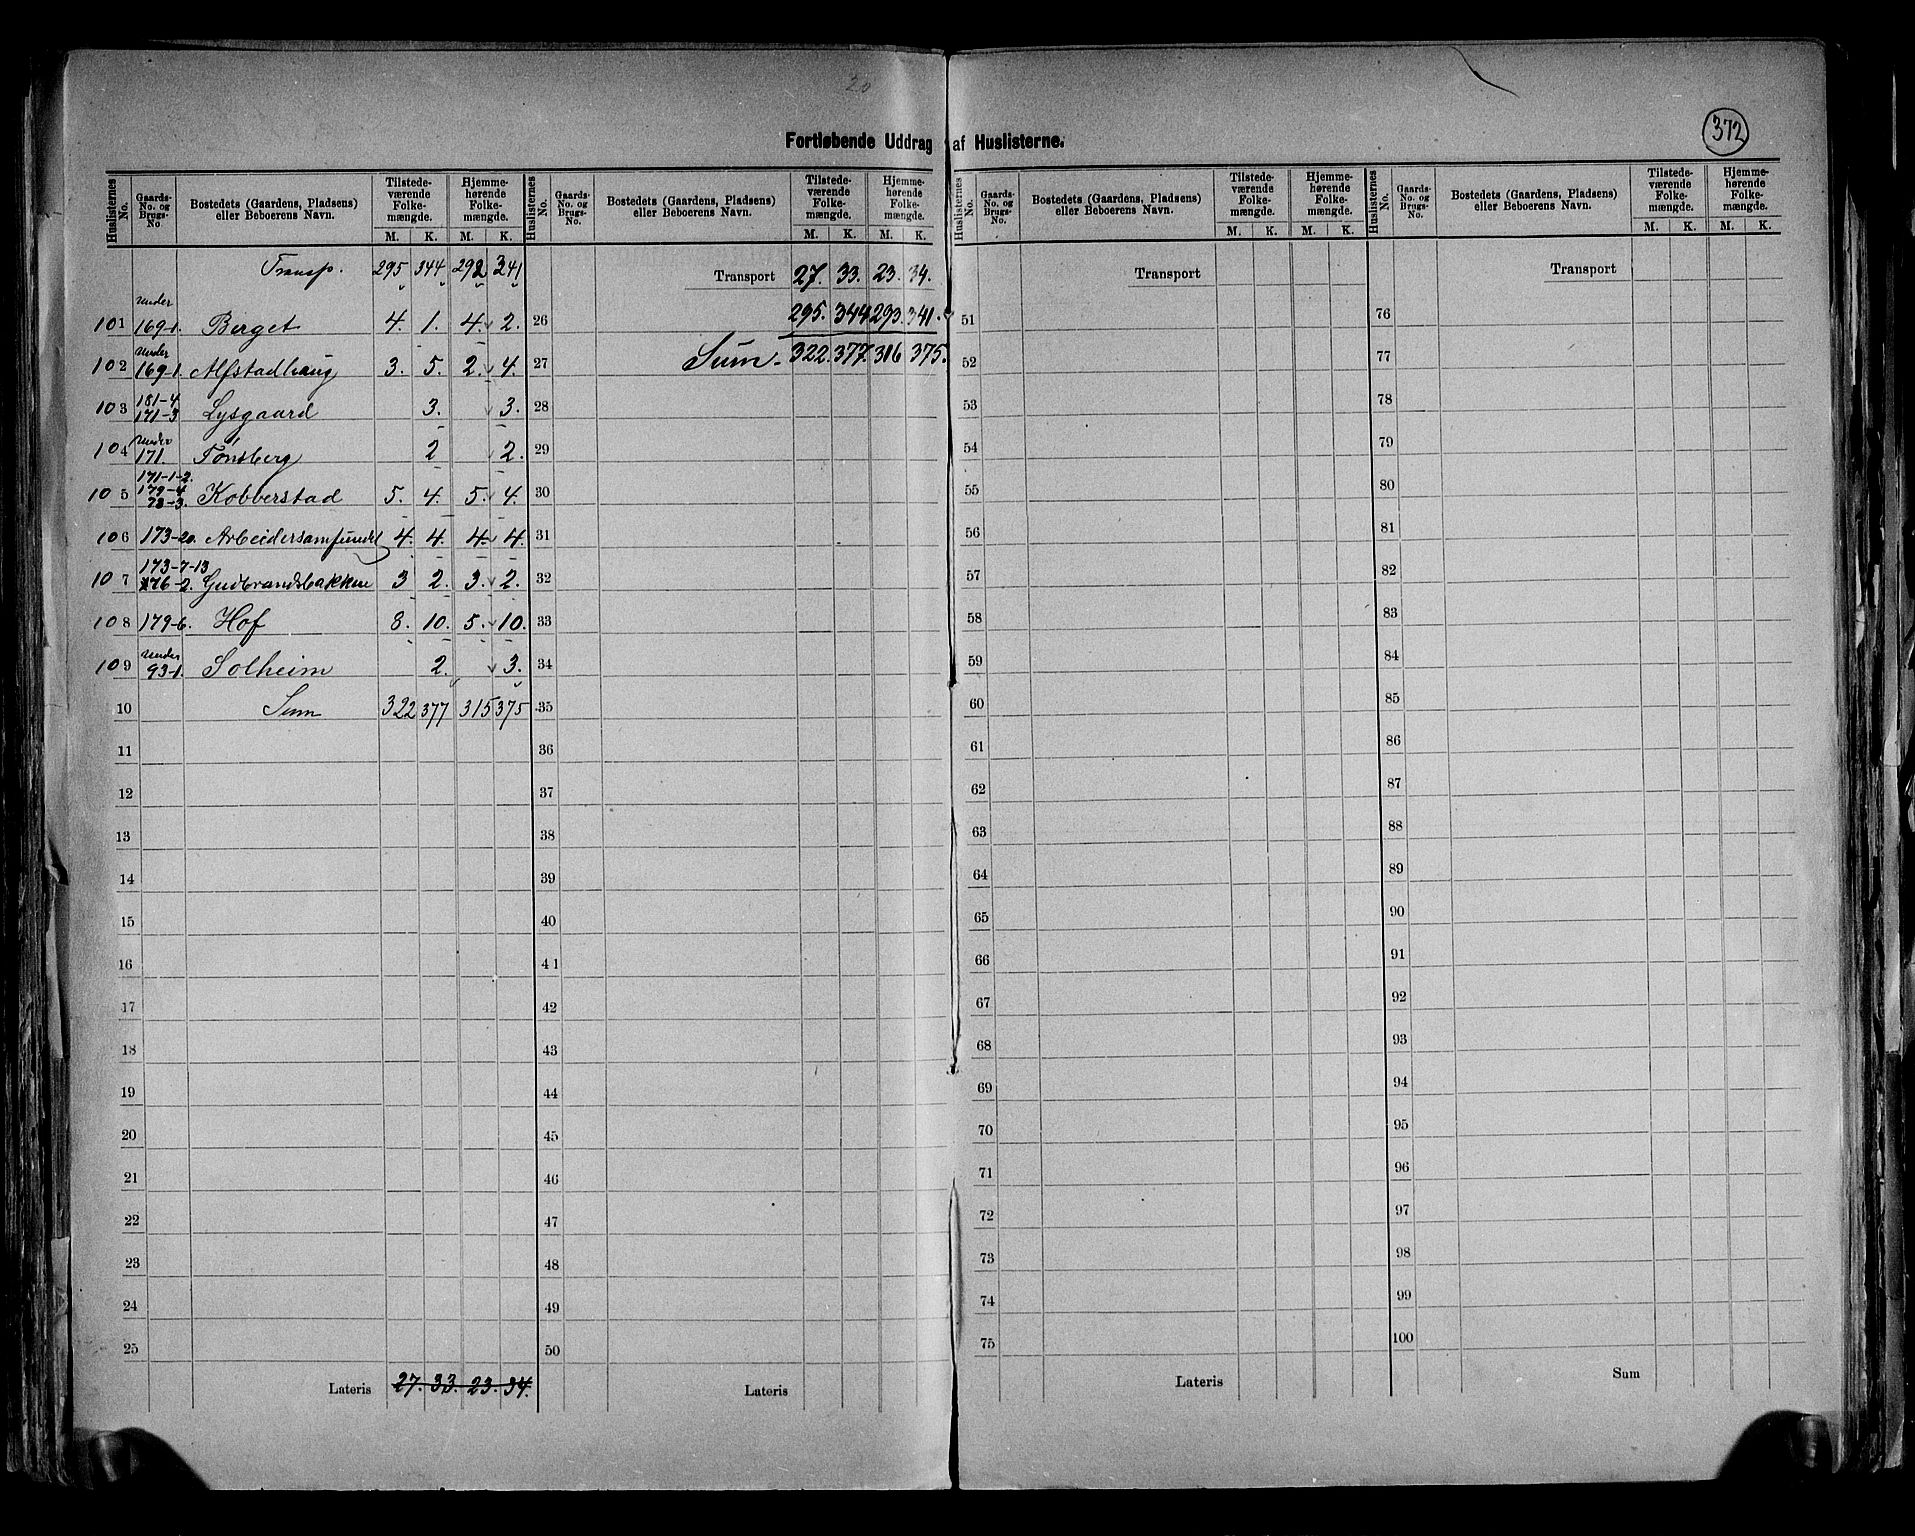 20
372
Fortløbende Uddrag af Huslisterne.
Huslisternes No. | Gaards-No. og Brugs-No. | Bostedets (Gaardens, Pladsens) eller Beboerens Navn. | Tilstedeværende Folkemængde. M. K. | Hjemmehørende Folkemængde. M. K.
Transp. 295 344 292 341
101 under 169-1. Berget 4. 1. 4. 2.
102 under 169-1. Alfstadhaug 3. 5. 2. 4.
103 181-4 171-3 Lysgaard 3. 3.
104 under 171. Tønsberg 2 2.
105 171-1-2. 179-4 78-3. Kobberstad 5. 4. 5. 4.
106 173-20. Arbeidersamfundet 4. 4. 4. 4.
107 173-7-13 176-2. Gudbrandsbakken 3 2. 3. 2.
108 179-6. Hof 8. 10. 5. 10.
109 under 93-1. Solheim 2. 3.
10 Sum 322 377 315 375
11
12
13
14
15
16
17
18
19
20
21
22
23
24
25
Lateris 27. 33. 23. 34.
Huslisternes No. | Gaards-No. og Brugs-No. | Bostedets (Gaardens, Pladsens) eller Beboerens Navn. | Tilstedeværende Folkemængde. M. K. | Hjemmehørende Folkemængde. M. K.
Transport 27. 33. 23. 34.
26 295. 344 293. 341.
27 Sum. 322. 377. 316 375.
28
29
30
31
32
33
34
35
36
37
38
39
40
41
42
43
44
45
46
47
48
49
50
Lateris
Huslisternes No. | Gaards-No. og Brugs-No. | Bostedets (Gaardens, Pladsens) eller Beboerens Navn. | Tilstedeværende Folkemængde. M. K. | Hjemmehørende Folkemængde. M. K.
Transport
51
52
53
54
55
56
57
58
59
60
61
62
63
64
65
66
67
68
69
70
71
72
73
74
75
Lateris
Huslisternes No. | Gaards-No. og Brugs-No. | Bostedets (Gaardens, Pladsens) eller Beboerens Navn. | Tilstedeværende Folkemængde. M. K. | Hjemmehørende Folkemængde. M. K.
Transport
76
77
78
79
80
81
82
83
84
85
86
87
88
89
90
91
92
93
94
95
96
97
98
99
100
Sum